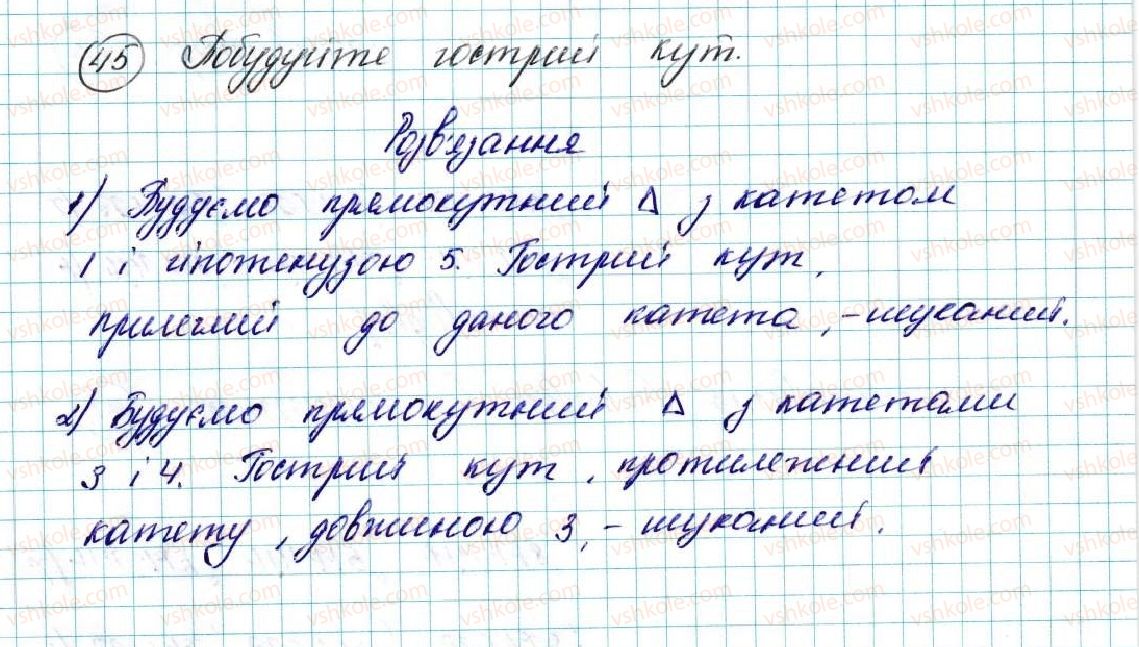 45 Побудуйте гострий кут.
Розв'язання
1) Будуємо прямокутний Δ з катетом
1 і гіпотенузою 5. Гострий кут,
прилеглий до даного катета, - шуканий.
2) Будуємо прямокутний Δ з катетами
3 і 4. Гострий кут, протилежний
катету, довжиною 3, - шуканий.